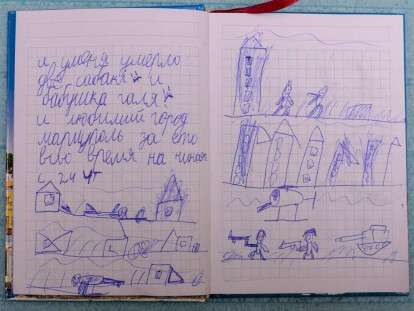 и у меня умерло
две собаки и
бабушка галя
и любимий город
мариуполь за ето
всьо время на чиная
с 24 чт